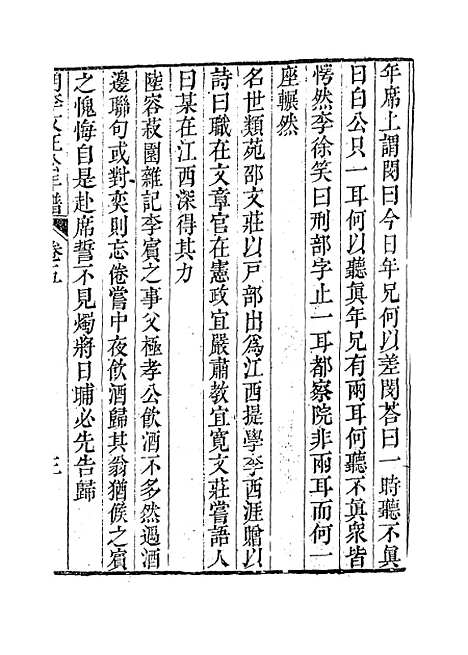 年席上謂閔曰今日年兄何以差閔荅曰一時聽不眞
日白公只一耳何以聽眞年兄有兩耳何聽不眞衆皆
愕然李徐笑曰刑部字止一耳都察院非兩耳而何一
座冁然
名世類苑邵文莊以戸部出爲江西提學李西涯贈以
詩曰職在文章官在憲政宜嚴肅教宜寬文莊嘗語人
曰某在江西深得其力
陸容菽園雜記李賓之事父極孝公飲酒不多然遇酒
邊聯句或對奕則忘倦嘗中夜飲酒歸其翁猶候之賓
之愧悔自是赴席誓不見燭將日晡必先告歸
明李文正公年譜 卷五 三